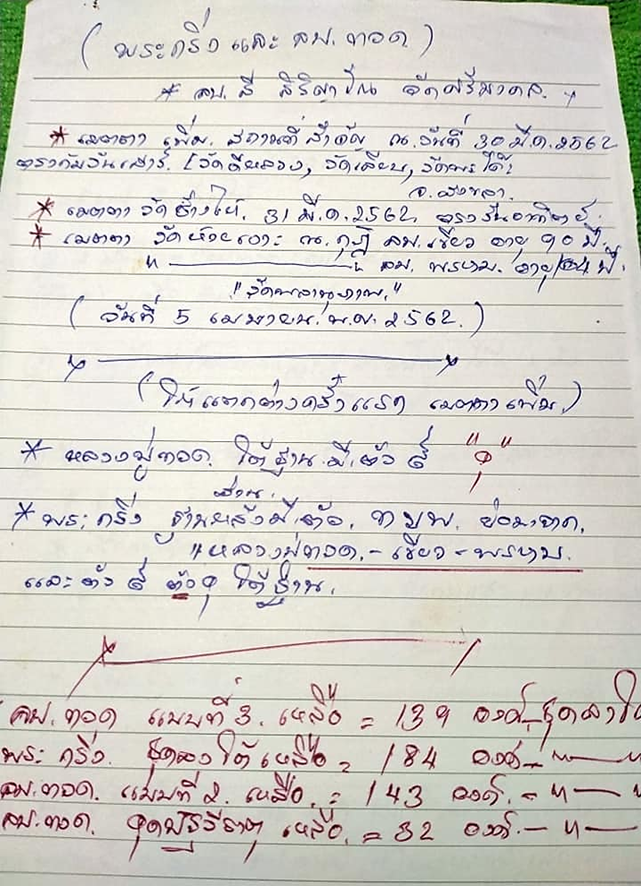 (พระกริ่ง และ ลป. ทวด)
* ลป. สี สิริญาโณ วัดศรีมงคล.
* เมตตา เพิ่ม. สถานที่สำคัญ ณ. วันที่ 30 มี.ค. 2562
ตรงกับวันเสาร์. [วัดดีหลวง, วัดเลียบ, วัดพะโค๊ะ
จ. สงขลา.
* เมตตา วัดช้างให้. 31 มี.ค. 2562. ตรงวันอาทิตย์.
* เมตตา วัดห้วยเงาะ ณ. กุฏิ ลป. เขียว อายุ ๙๐ ปี.
" ——— " ลป. พรหม. อายุ ปี.
"วัดพลานุภาพ."
(วันที่ 5 เมษายน. พ.ศ. 2562.)
(ให้แตกต่างครั้งแรก เมตตาเพิ่ม.)
* หลวงปู่ทวด. ใต้ฐาน. มี. ตัว
* พระ. กริ่ง ฐานหลังมี. ตัว. ท ข พ. ย่อมาจาก.
ด้าน.
"หลวงปู่ทวด. - เขียว - พรหม.
และ ตัว ใต้ฐาน.
ลป. ทวด แบบที่ 3. เหลือ = 139 องค์-
พระ กริ่ง. เหลือ = 184 องค์- " — "
ลป. ทวด. แบบที่ 2. เหลือ. = 143 องค์. - " —
ลป. ทวด. เหลือ. = 32 องค์. - " —